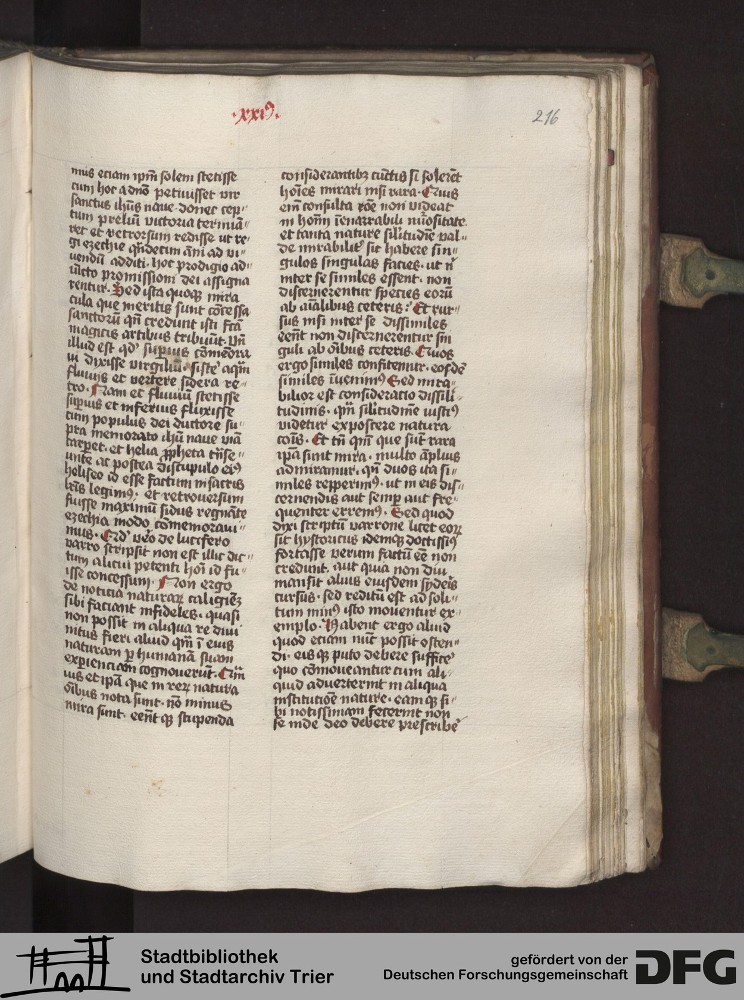 ·xxi⁹·
216
mus eciam ipm̄ solem stetisse
cum hoc a dn̄o petiuisset vir
sanctus ih̄us naue. donec cep⸗
tum preliū victoria termīa⸗
ret et retrorsum redisse ut re⸗
gi ezechie qn̄decim ān̄i ad vi⸗
uendū additi. hoc prodigio ad⸗
iūcto promissioni dei assigna
rentur. Sed ista quoqꝫ mira
cula que meritis sunt cōcessa
sanctorū qn̄ credunt isti fc̄a
magicis artibus tribuūt. Vn̄
illud est qd' superius cōmēdra
ui dixisse virgiliū. siste aqm̄
fluuijs et vertere sidera re⸗
tro. Nam et fluuiū stetisse
supius et inferius fluxisse
cum populus dei ductore su⸗
pra memorato ih̄u naue viā
carpet. et helia ꝓpheta trn̄se⸗
unte ac postea discupulo ei⁹
heliseo id esse factum in sacris
lr̄is legim⁹. et retrouersum
fuisse maximū sidus regnāte
ezechia modo cōmemoraui⸗
mus. Qd' vero de lucifero
varro scripsit non est illic dic⸗
tum alicui petenti hoī id fu⸗
isse concessum. Non ergo
de noticia naturaꝝ caligiēꝫ
sibi faciant infideles. quasi
non possit in aliqua re diui
nitus fieri aliud qm̄ ī eius
naturam ꝑ humanā suam
experienciam cognouerūt. Qm̄
uis et ipā que in reꝝ natura
oībus nota sunt. nō minus
mira sunt. eēnt qꝫ stupenda
considerantibꝫ cūctis si solerēt
hoīes mirari nisi rara. Cuius
em̄ consulta rōe non videat
in hoīm īenarrabili nūositate.
et tanta nature silitudīe val⸗
de mirabilit' sic habere sin⸗
gulos singulas facies. ut n̄
inter se similes essent. non
discernerentur species eorū
ab aīalibus ceteris. Et rur⸗
sus nisi inter se dissimiles
eēnt non discernerentur sin
guli ab oībus ceteris. Quos
ergo similes confitemur. eosdē
similes īuenim⁹ Sed mira⸗
bilior est consideracio dissili⸗
tudinis. qm̄ silitudinē iusti⁹
videtur exposcere natura
cōis. Et tn̄ qm̄ que sūt rara
ipā sunt mira. multo āplius
admiramur. qn̄ duos ita si⸗
miles repperim⁹. ut in eis dis⸗
cernendis aut semp aut fre⸗
quenter errem⁹. Sed quod
dixi scriptū varrone licet eoꝝ
sit hystoricus idemqꝫ doctissi⁹
fortasse verum factū eē non
credunt. aut quia non diu
mansit alius eiusdem syderis
cursus. sed reditū est ad soli⸗
tum min⁹ isto mouentur ex⸗
emplo. Habent ergo aliud
quod etiam nūc possit osten⸗
di. eis qꝫ puto debere sufficē'
quo cōmoueantur cum ali⸗
quid aduerterint in aliqua
institutiōe nature. eam qꝫ si⸗
bi notissimam fecerint non
se inde deo debere prescribē'
Stadtbibliothek
und Stadtarchiv Trier
gefördert von der
Deutschen Forschungsgemeinschaft
DFG